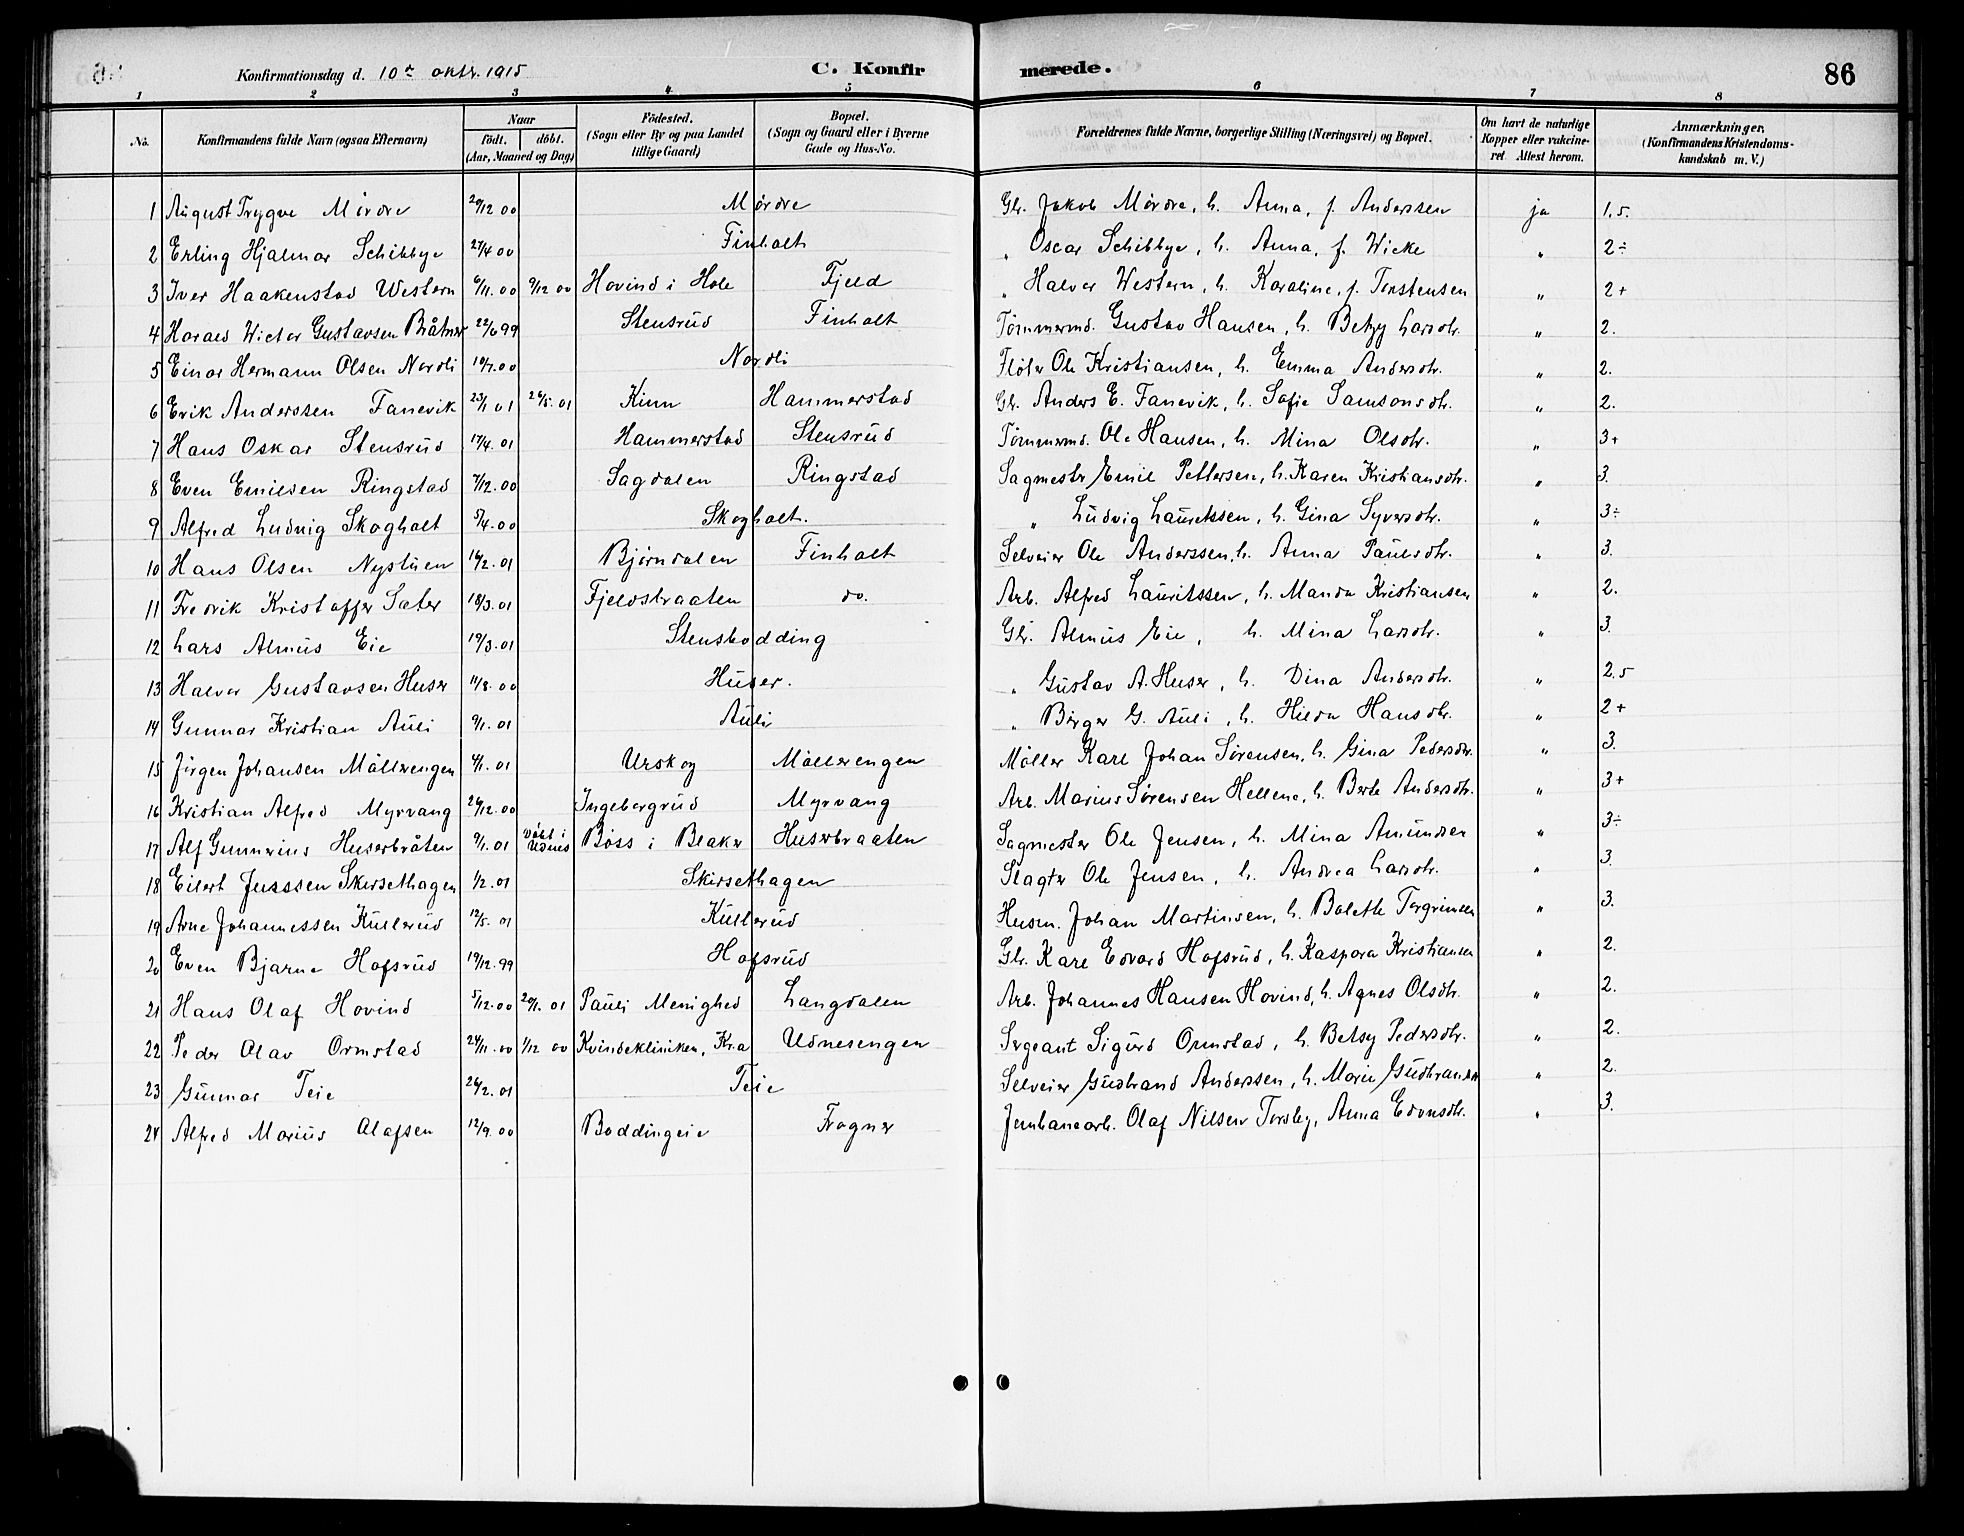 Konfirmationsdag d. 10de oktbr. 1915 C. Konfirmerede. 86
1 2 3 4 5 6 7 8
No. Konfirmandens fulde Navn (ogsaa Efternavn) Naar födt. döbt. (Aar, Maaned og Dag) Födested. (Sogn eller By og paa Landet tillige Gaard) Bopæl. (Sogn og Gaard eller i Byerne Gade og Hus-No. Forældrenes fulde Navne, borgerlige Stilling (Næringsvei) og Bopæl. Om havt de naturlige Kopper eller vakcineret Attest herom. Anmærkninger. (Konfirmandens Kristendomskundskab m. V.)
1 August Trygve Mørdre 29/12 00 Mørdre Gbr. Jakob Mørdre, h. Anna, f. Anderssen ja 1,5.
2 Erling Hjalmar Schibbye 27/4 00 Finholt " Oscar Schibbye, h. Anna, f. Wicke " 2÷
3 Iver Haakenstad Western 6/11. 00 9/12 00 Hovind i Hole Fjeld " Halvor Western, h. Karoline, f. Torstensen " 2+
4 Harald Victor Gustavsen Båtner 22/6 99 Stensrud Finholt Tømmermd. Gustav Hansen, h. Betzy Larsdtr. " 2.
5 Einar Hermann Olsen Nordli 10/7.00 Nordli Fløter Ole Kristiansen, h. Emma Andersdtr. " 2.
6 Erik Anderssen Fanevik 23/1 01 26/5.01 Kinn Hammerstad Gbr. Anders E. Fanevik, h. Sofie Samsonsdtr. " 2.
7 Hans Oskar Stensrud 17/4. 01 Hammerstad Stensrud Tømmermd. Ole Hansen, h. Mina Olsdtr. " 3+
8 Even Emilsen Ringstad 7/12.00 Sagdalen Ringstad Sagmestr Emil Pettersen, h. Karen Kristiansdtr. " 3.
9 Alfred Ludvig Skogholt 5/4.00 Skogholt. " Ludvig Lauritssen, h. Gina Syversdtr. " 3÷
10 Hans Olsen Nystuen 14/2.01 Bjørndalen Finholt Selveier Ole Anderssen, h. Anna Paulsdtr. " 3.
11 Fredrik Kristoffer Sæter 18/3.01 Fjeldstraaten do. Arb. Alfred Lauritssen, h. Manda Kristiansen " 2.
12 Lars Almus Eie 19/3.01 Stensbodding Gbr. Almus Eie, h. Mina Larsdtr. " 3.
13 Halvor Gustavsen Huser 11/8.00 Huser. " Gustav A. Huser, h. Dina Andersdtr. " 2,5
14 Gunnar Kristian Auli 9/1.01 Auli " Birger G. Auli, h. Hilda Hansdtr. " 2+
15 Jörgen Johansen Möllerengen 4/1.01 Urskog Möllerengen Møller Karl Johan Sørensen, h. Gina Pedersdtr. " 3.
16 Kristian Alfred Myrvang 26/12.00 Ingebergrud Myrvang Arb. Marius Sørensen Hellene, h. Berte Andersdtr. " 3+
17 Alf Gunnerius Huserbråten 9/1.01 Døbt i Udnes Böss i Blaker Huserbraaten Sagmester Ole Jensen, h. Mina Amundsen " 3÷
18 Eilert Jenssen Skirsethagen 1/2.01 Skirsethagen Slagter Ole Jensen, h. Andrea Larsdtr. " 3.
19 Arne Johannessen Kullerud 12/5. 01 Kullerud Husm. Johan Martinsen, h. Bolette Torgrimsen " 3.
20 Even Bjarne Hofsrud 19/12.99 Hofsrud Gbr. Karl Edvard Hofsrud, h. Kaspara Kristiansen " 2.
21 Hans Olaf Hovind 5/12.00 20/1. 01 Pauli Menighed Langdalen Arb. Johannes Hansen Hovind, h. Agnes Olsdtr. " 2.
22 Peder Olav Ormstad 24/11.00 1/12 00 Kvindekliniken, Kra Udnesengen Sergeant Sigurd Ormstad, h. Betsy Pedersdtr. " 2.
23 Gunnar Teie 26/2.01 Teie Selveier Gudbrand Anderssen, h. Marie Gudbrandsen " 2.
24 Alfred Marius Olafsen 12/9.00 Boddingeie Frogner Jernbanearb. Olaf Nilsen Torsby, Anna Edvnsdtr. " 3.